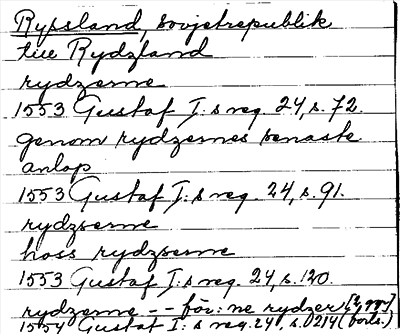 Ryssland, sovjetrepublik
till Rydzland
rydzerne
1553 Gustaf I:s reg. 24, s. 72.
genom rydzernes senaste
anlop
1553 Gustaf I:s reg. 24, s. 91.
rydzserne
hoss rydzserne
1553 Gustaf I:s reg. 24, s. 120.
rydzerne -- för: ne rydzer
1554 Gustaf I:s reg. 24, s. 0214 (forts.)